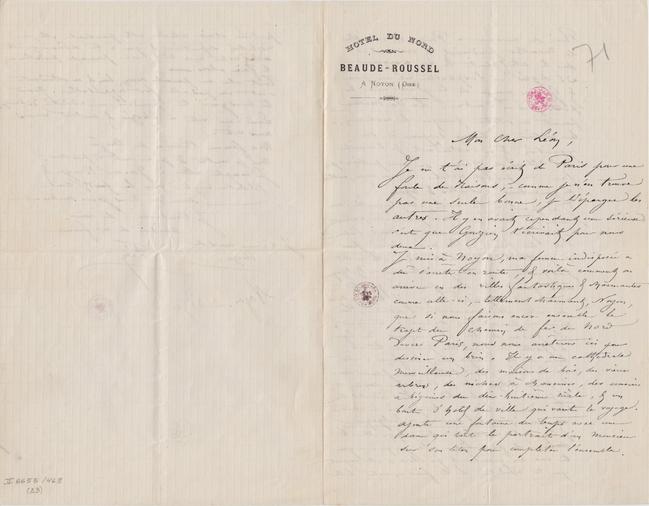 HOTEL DU NORD
BEAUDE-ROUSSEL
A NOYON (OISE)
71
Mon cher Léon,
Je ne t'ai pas écrit de Paris pour une
foule de raisons, – comme je n'en trouve
pas une seule bonne, je t'épargne les
autres. Il y en avait cependant une sérieuse
c'est que t'écrivait pour nous
deux.
Je suis à Noyon, ma femme indisposée a
dû s'arrêter en route, & voilà comment on
arrive en des villes fantastiques & charmantes
comme celle-ci, – tellement charmante, Noyon,
que si nous faisons encor ensemble le
trajet du chemin de fer du Nord
vers Paris, nous nous arrêterons ici pour
dessiner un brin. Il y a une cathédrale
merveilleuse, des maisons de bois, des vieux
arbres, des niches à chanoines, des
à du dix-huitième siècle, & un
bout d'hôtel de ville qui vaut le voyage.
ajoute une fontaine du temps avec un
qui est le portrait d'un Monsieur
sur son pour compléter l'ensemble.
II 6655/468
(23)